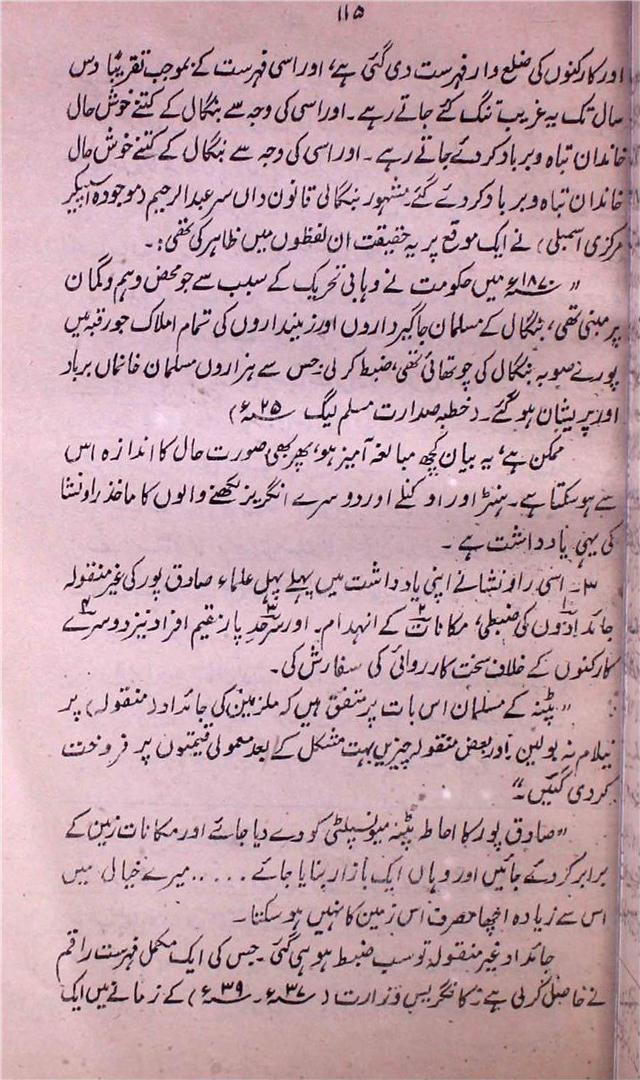 ۱۱۵
اور کارکنوں کی ضلع وار فہرست دی گئی ہے، اور اسی فہرست کے بموجب تقریباً دس
سال تک یہ غریب تنگ کئے جاتے رہے۔ اور اسی کی وجہ سے بنگال کے کتنے خوش حال
خاندان تباہ و برباد کر دئے جاتے رہے۔ اور اسی کی وجہ سے بنگال کے کتنے خوش حال
خاندان تباہ و برباد کر دئے گئے۔ مشہور بنگالی قانون داں سر عبدالرحیم (موجودہ اسپیکر
مرکزی اسمبلی) نے ایک موقع پر یہ حقیقت ان لفظوں میں ظاہر کی تھی:۔
"۱۸۷۰ء میں حکومت نے وہابی تحریک کے سبب سے جو محض وہم و گمان
پر مبنی تھی، بنگال کے مسلمان جاگیرداروں اور زمینداروں کی تمام املاک جو رقبہ میں
پورے صوبہ بنگال کی چوتھائی تھی، ضبط کر لی جس سے ہزاروں مسلمان خانماں برباد
اور پریشان ہو گئے۔ (خطبہ صدارت مسلم لیگ ۲۵ء)
ممکن ہے، یہ بیان کچھ مبالغہ آمیز ہو، پھر بھی صورت حال کا اندازہ اس
سے ہو سکتا ہے۔ ہنٹر اور اوکنلے اور دوسرے انگریز لکھنے والوں کا ماخذ راونشا
کی یہی یادداشت ہے۔
۳۔ اسی راونشا نے اپنی یادداشت میں پہلے پہل علماء صادق پور کی غیر منقولہ
جائدادوں کی ضبطی۱، مکانات۲ کے انہدام۔ اور سرحد۳ پار مقیم افراد نیز دوسرے۴
کارکنوں کے خلاف سخت کارروائی کی سفارش کی۔
"پٹنہ کے مسلمان اس بات پر متفق ہیں کہ ملزمین کی جائداد (منقولہ) پر
نیلام نہ بولیں اور بعض منقولہ چیزیں بہت مشکل کے بعد معمولی قیمتوں پر فروخت
کر دی گئیں۔"
"صادق پور کا احاطہ پٹنہ میونسپلٹی کو دے دیا جائے اور مکانات زمین کے
برابر کر دئے جائیں اور وہاں ایک بازار بنایا جائے ..... میرے خیال میں
اس سے زیادہ اچھا مصرف اس زمین کا نہیں ہو سکتا۔
جائداد غیر منقولہ تو سب ضبط ہو ہی گئی۔ جس کی ایک مکمل فہرست راقم
نے حاصل کر لی ہے: کانگریس وزارت (۳۷ء۔۳۹ء) کے زمانے میں ایک